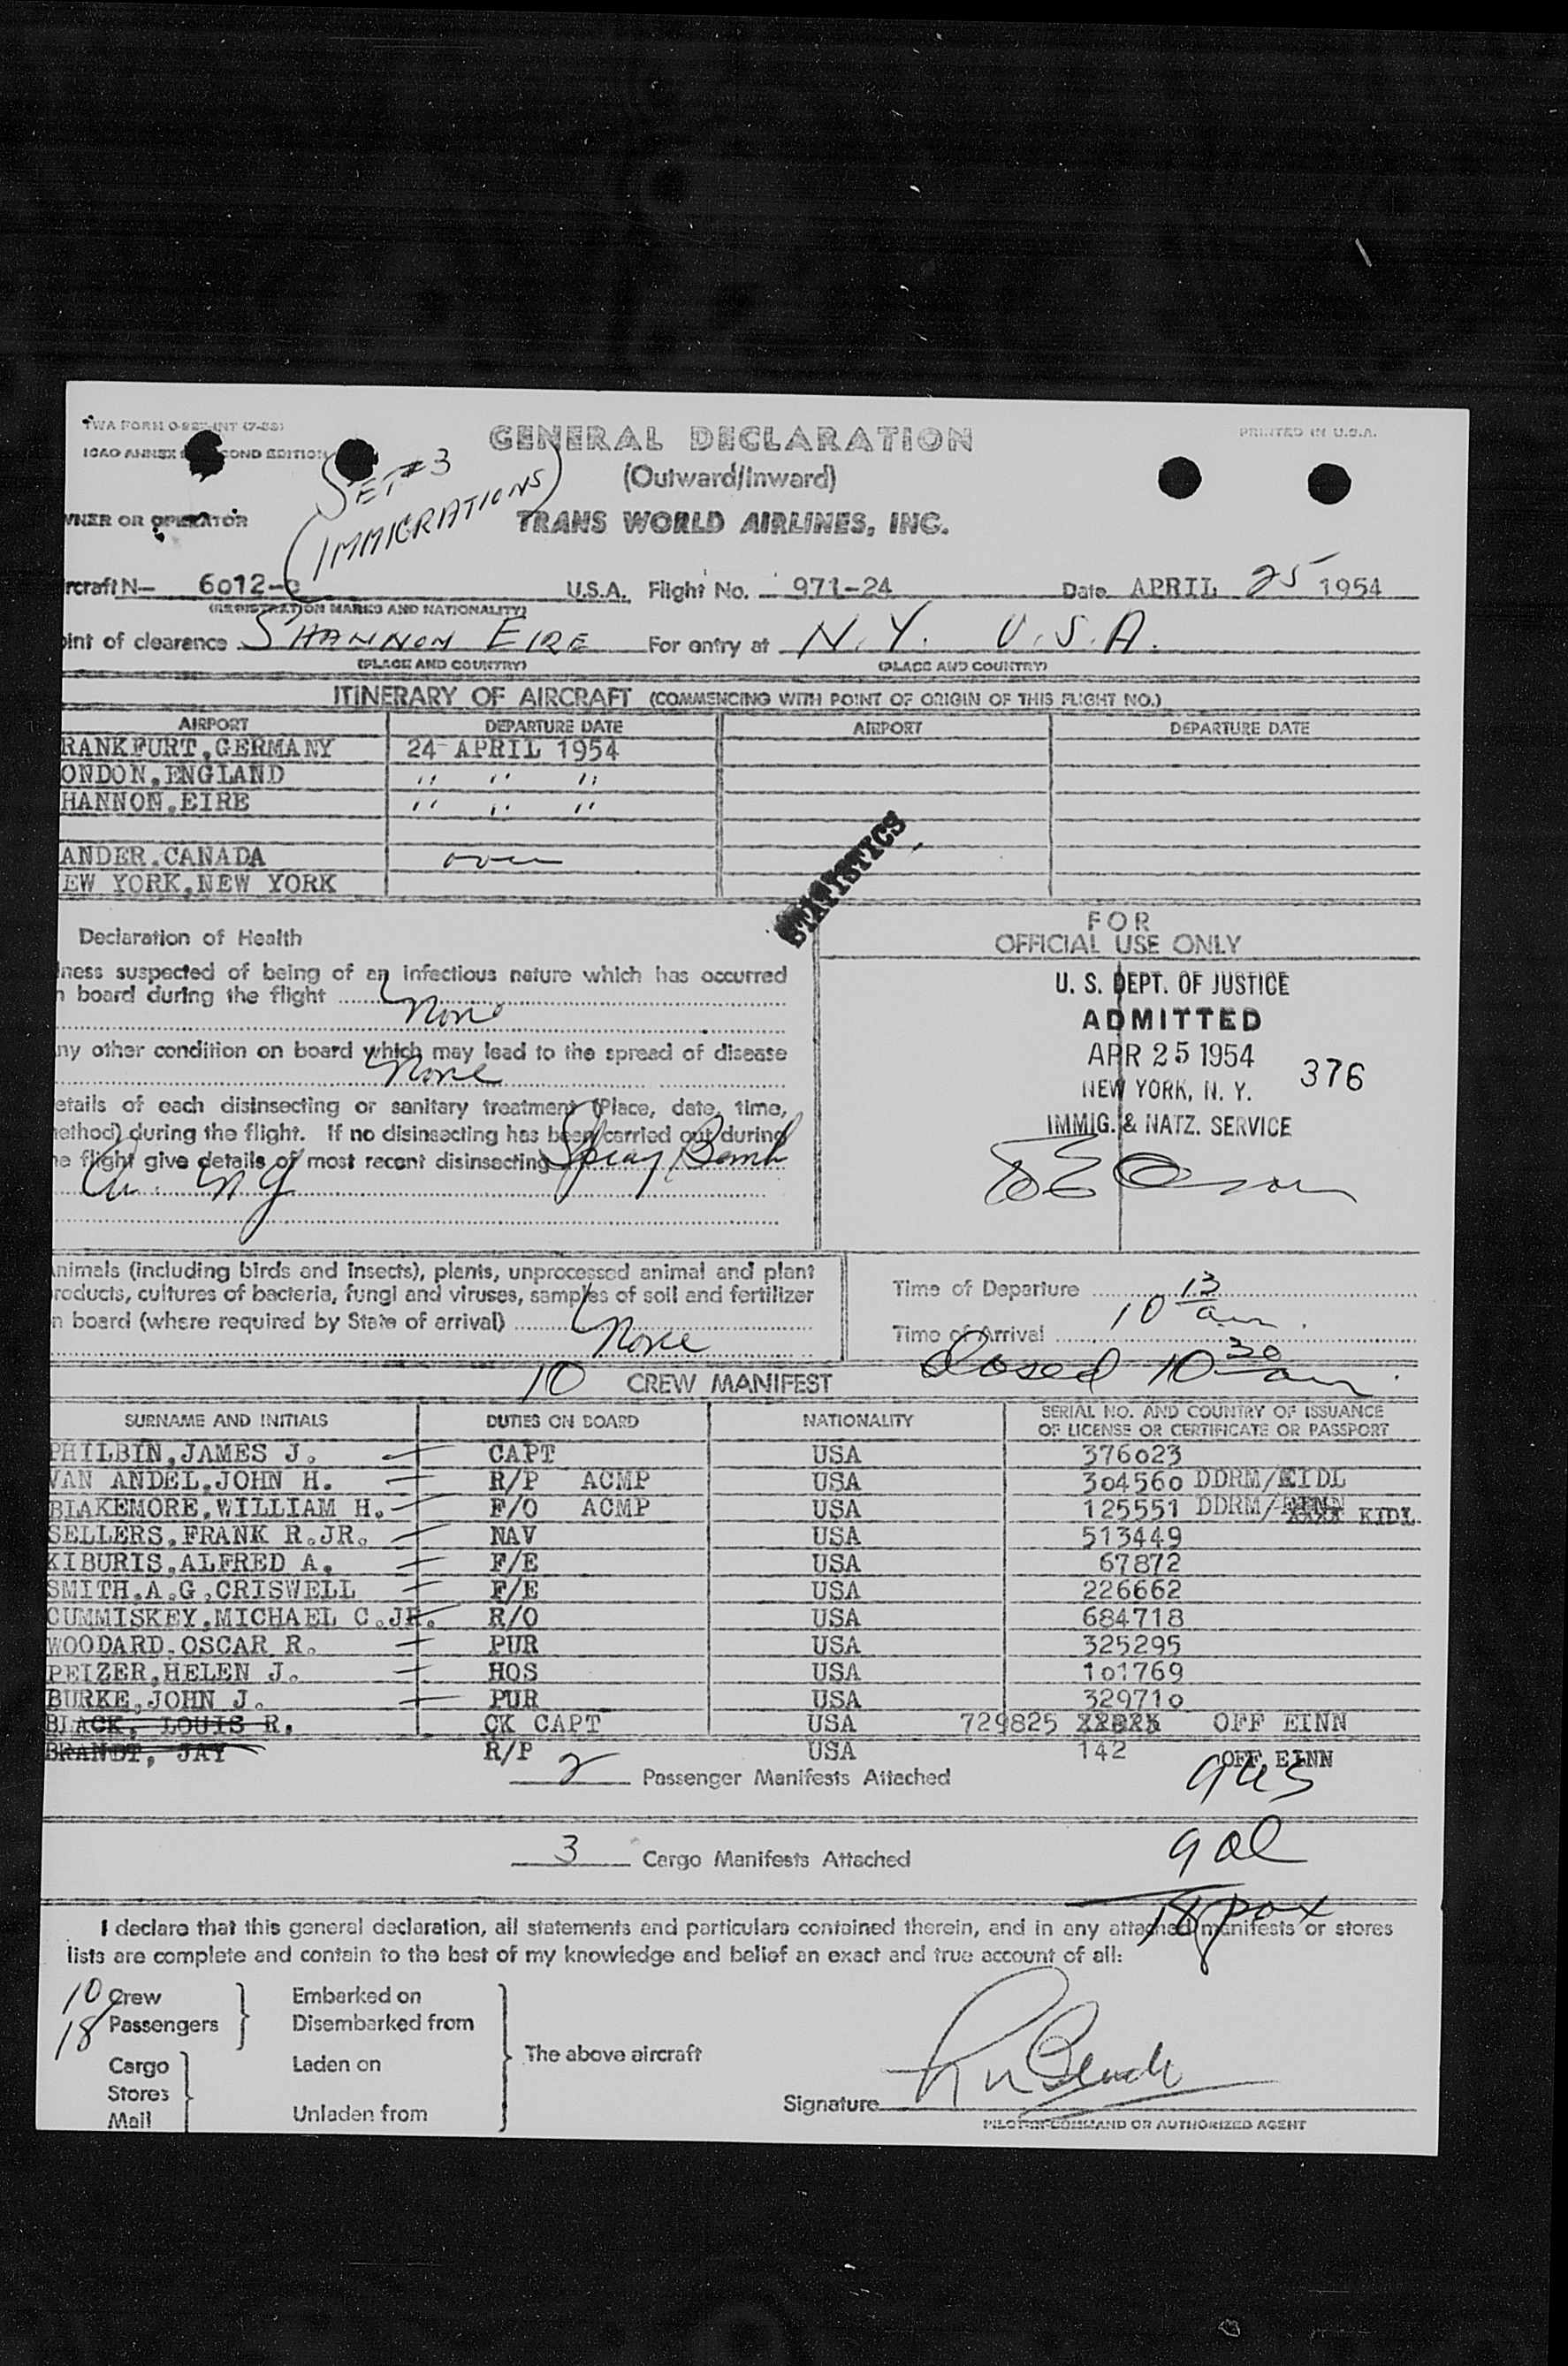 TWA FORM O-
PRINTED IN U.S.A.
ICAO ANNEX
COND EDITION
GENERAL DECLARATION
(Outward/Inward)
SET #3
(IMMIGRATIONS)
WNER OR OPERATOR
TRANS WORLD AIRLINES, INC.
rcraft N— 6012- U.S.A. Flight No. 971-24 Date APRIL 25 1954
(REGISTRATION MARKS AND NATIONALITY)
oint of clearance SHANNON EIRE For entry at N.Y. U.S.A.
(PLACE AND COUNTRY) (PLACE AND COUNTRY)
ITINERARY OF AIRCRAFT (COMMENCING WITH POINT OF ORIGIN OF THIS FLIGHT NO.)
AIRPORT DEPARTURE DATE AIRPORT DEPARTURE DATE
RANKFURT,GERMANY 24 APRIL 1954
ONDON,ENGLAND " " "
HANNON,EIRE " " "
ANDER.CANADA over
EW YORK,NEW YORK
STATISTICS
Declaration of Health
lness suspected of being of an infectious nature which has occurred
n board during the flight
None
ny other condition on board which may lead to the spread of disease
None
etails of each disinsecting or sanitary treatment (Place, date, time,
nethod) during the flight. If no disinsecting has been carried out during
ne flight give details of most recent disinsecting Spray Bomb
FOR
OFFICIAL USE ONLY
U. S. DEPT. OF JUSTICE
ADMITTED
APR 25 1954 376
NEW YORK, N. Y.
IMMIG. & NATZ. SERVICE
nimals (including birds and insects), plants, unprocessed animal and plant
roducts, cultures of bacteria, fungi and viruses, samples of soil and fertilizer
n board (where required by State of arrival)
None
Time of Departure
10 13 am
Time of Arrival
Closed 10 30 am
10 CREW MANIFEST
SURNAME AND INITIALS DUTIES ON BOARD NATIONALITY SERIAL NO. AND COUNTRY OF ISSUANCE
OF LICENSE OR CERTIFICATE OR PASSPORT
PHILBIN,JAMES J. CAPT USA 376023
VAN ANDEL,JOHN H. R/P ACMP USA 304560 DDRM/KIDL
BLAKEMORE,WILLIAM H. F/O ACMP USA 125551 DDRM/EINN KIDL
SELLERS,FRANK R.JR. NAV USA 513449
KIBURIS,ALFRED A. F/E USA 67872
SMITH.A.G.CRISWELL F/E USA 226662
CUMMISKEY,MICHAEL C.JR. R/O USA 684718
WOODARD.OSCAR R. PUR USA 325295
PEIZER,HELEN J. HOS USA 101769
BURKE,JOHN J. PUR USA 329710
BLACK, LOUIS R. CK CAPT USA 729825 OFF EINN
BRANDT, JAY R/P USA 142 OFF EINN
2 Passenger Manifests Attached
9 us
3 Cargo Manifests Attached
9 al
18 pax
I declare that this general declaration, all statements and particulars contained therein, and in any attached manifests or stores
lists are complete and contain to the best of my knowledge and belief an exact and true account of all:
10 Crew Embarked on
18 Passengers Disembarked from
Cargo Laden on The above aircraft
Stores
Mail Unladen from
Signature
PILOT-IN-COMMAND OR AUTHORIZED AGENT